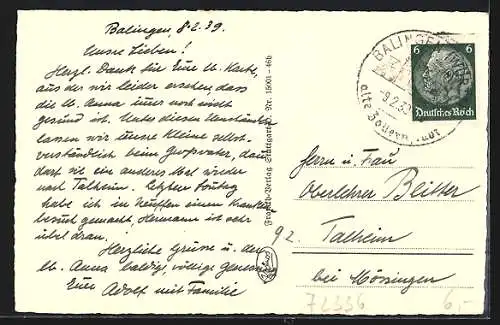 Balingen, 8.2.39.
Unsre Lieben!
Herzl. Dank für Eure lb. Karte,
aus der wir leider ersehen, dass
die lb. Anna immer noch nicht
gesund ist. Unter diesen Umständen
lassen wir unsre Kleine selbst-
verständlich beim Großvater, dann
darf sie ein anderes Mal wieder
nach Talheim. Letzten Sonntag
habe ich in Neuffen einen Kranken-
besuch gemacht, Hermann ist sehr
übel dran.
Herzliche Grüsse u. der
lb. Anna baldige, völlige Genesung
Eure
Adolf mit Familie
Verlag Stuttgart Nr. 15001-46b
BALINGEN
-9.2.39
alte Zollernstadt
6 6
Deutsches Reich
Herrn u. Frau
Oberlehrer Beitter
92. Talheim
bei Mössingen
72336
6,-